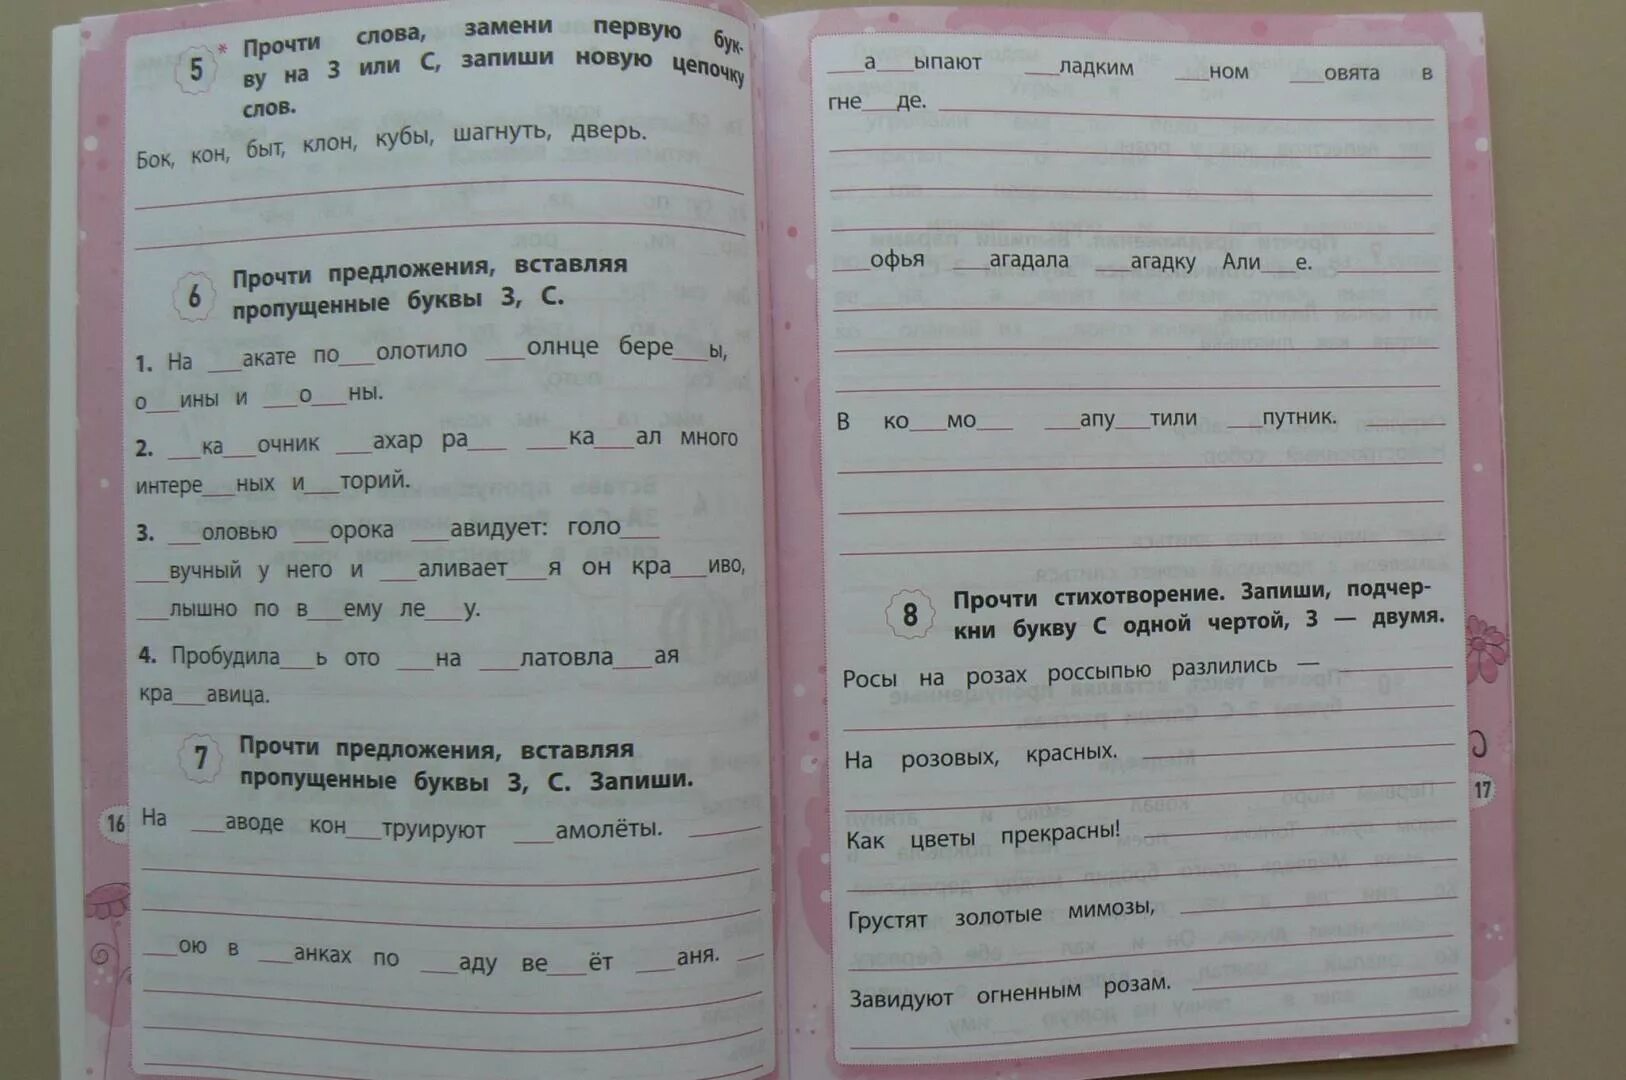 5* Прочти слова, замени первую бук-
ву на З или С, запиши новую цепочку
слов.
Бок, кон, быт, клон, кубы, шагнуть, дверь.
6 Прочти предложения, вставляя
пропущенные буквы З, С.
1. На __акате по__олотило __олнце бере__ы,
о__ины и __о__ны.
2. __ка__очник __ахар ра__ __ка__ал много
интере__ных и__торий.
3. __оловью __орока __авидует: голо__
__вучный у него и __аливает__я он кра__иво,
__лышно по в__ему ле__у.
4. Пробудила__ь ото __на __латовла__ая
кра__авица.
7 Прочти предложения, вставляя
пропущенные буквы З, С. Запиши.
На __аводе кон__труируют __амолёты.
__ою в __анках по __аду ве__ёт __аня.
16
__а__ыпают __ладким __ном __овята в
гне__де.
__офья __агадала __агадку Али__е.
В ко__мо__ __апу__тили __путник.
8 Прочти стихотворение. Запиши, подчер-
кни букву С одной чертой, З — двумя.
Росы на розах россыпью разлились —
На розовых, красных.
Как цветы прекрасны!
Грустят золотые мимозы,
Завидуют огненным розам.
17